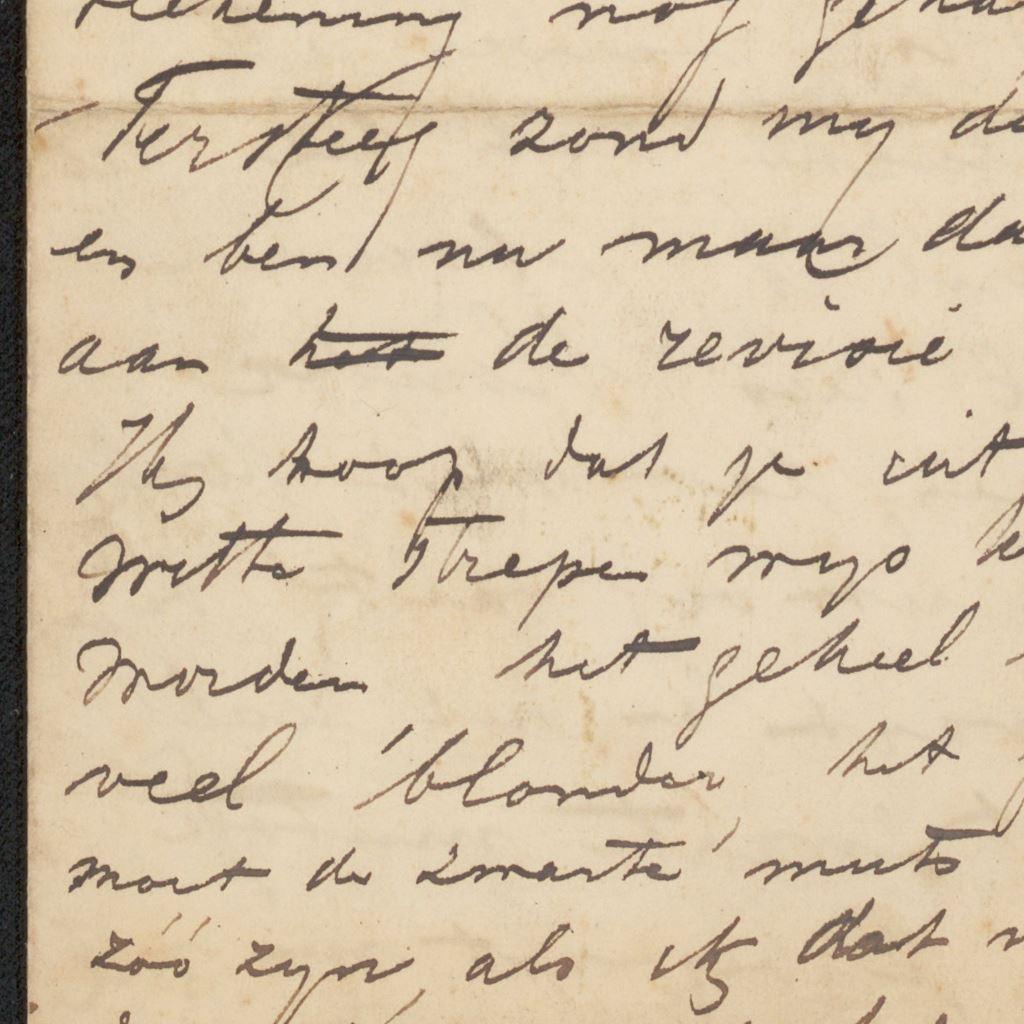 rekening nog geha
Tersteeg zond my de
en ben nu maar da
aan het de revisie
Ik hoop dat je uit
witte strepen wys
worden het geheel
veel blonder, het
moet de zwarte muts
zóó zyn, als ik dat